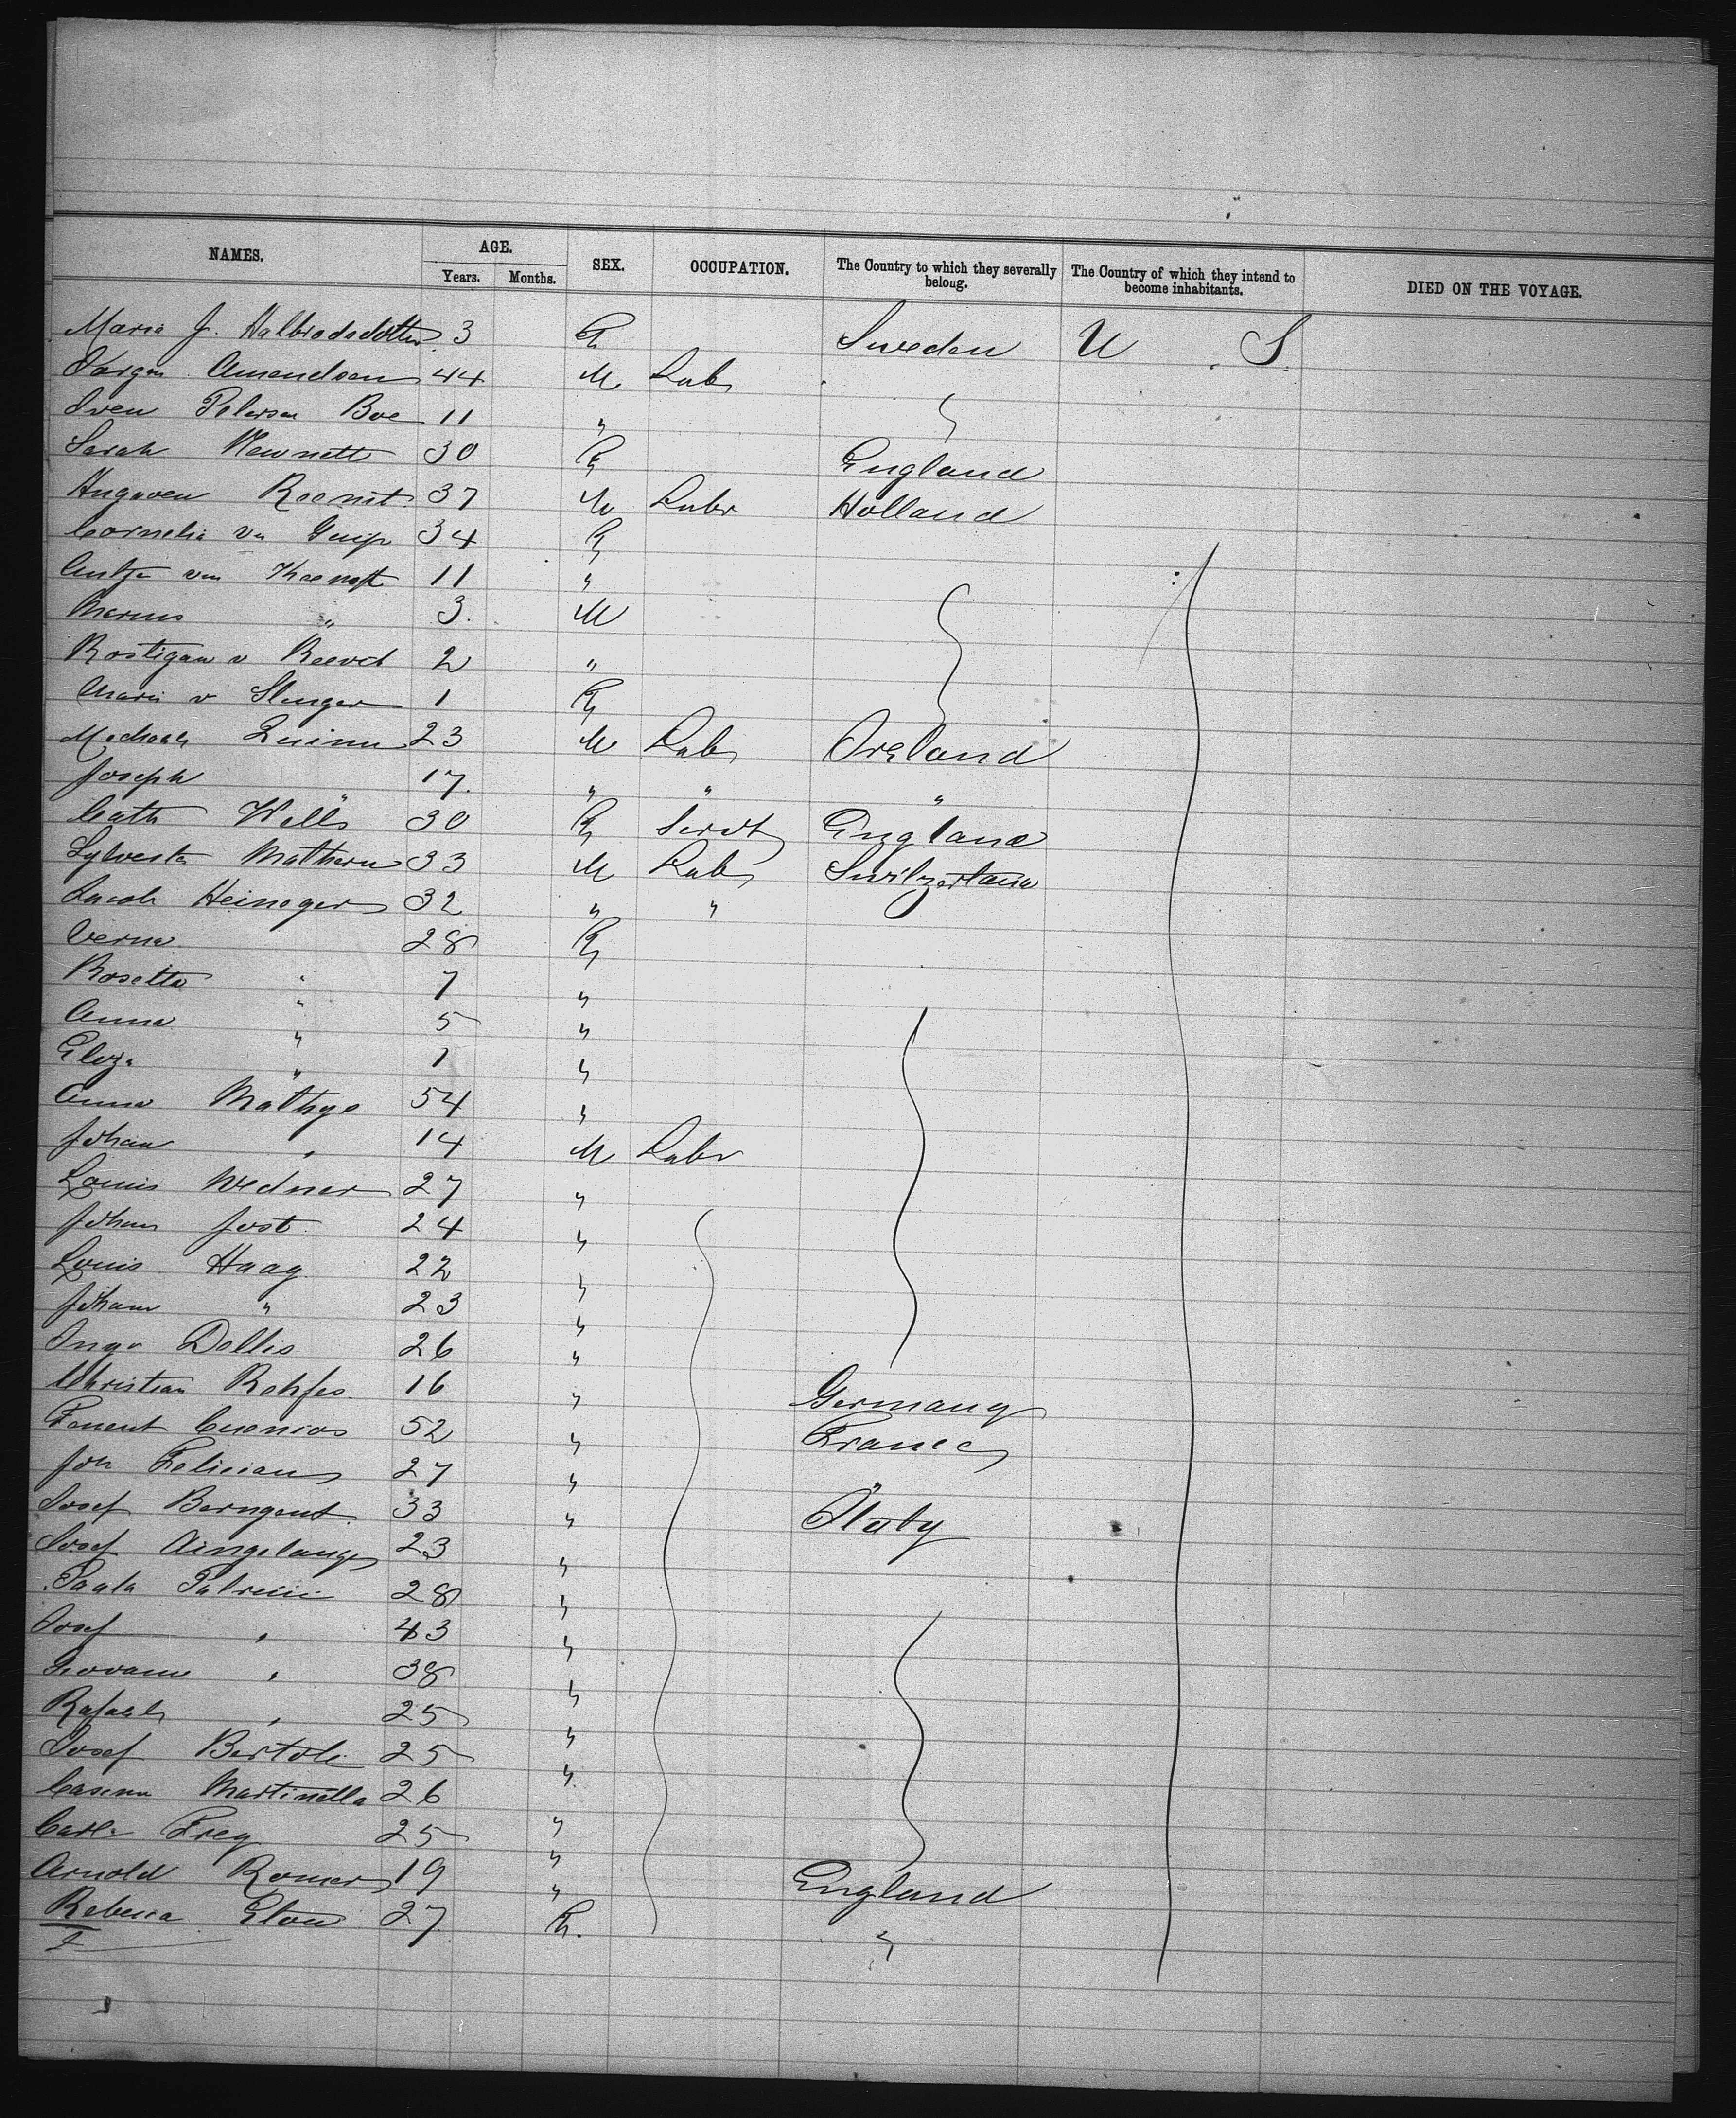 NAMES. AGE. SEX. OCCUPATION. The Country to which they severally belong. The Country of which they intend to become inhabitants. DIED ON THE VOYAGE.
Years. Months.
Maria J. 3 F Sweden U S
Amendsen 44 M Labr
Sven Peterson Boe 11 "
Sarah Newnett 30 F England
37 M Labr Holland
Cornelia vn 34 F
Antje van 11 "
Marius " 3. M
v 2 "
Maria v Slenger 1 F
Michael Quinn 23 M Labr Ireland
Joseph " 17. " " "
Cath Wells 30 F Servt England
Sylvester Mathern 33 M Labr Switzerland
Jacob Heineger 32 " "
Verna 28 F
Rosetta " 7 "
Anna " 5 "
Eliza " 1 "
Anna Mathys 54 "
Johan " 14 M Labr
Louis Wedner 27 "
Johan Jost 24 "
Louis Haag 22 "
Johann " 23 "
Dellis 26 "
Christian Rohfes 16 " Germany
52 " France
Joh Felician 27 " "
Josef Berngent 33 " Italy
Josef 23 "
Paala Patrini 28 "
Josef " 43 "
Giovanni " 38 "
Rafaeli " 25 "
Josef Bertoli 25 "
Martinella 26 "
Carlo Frey 25 "
Arnold Romer 19 " England
Rebecca Elow 27 F. "